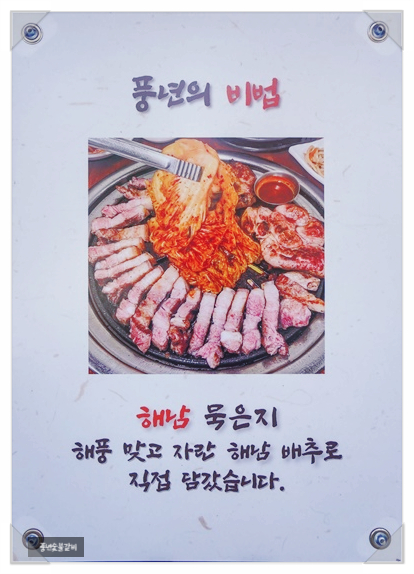 풍년의 비법
해남 묵은지
해풍 맞고 자란 해남 배추로
직접 담갔습니다.
풍년숯불갈비